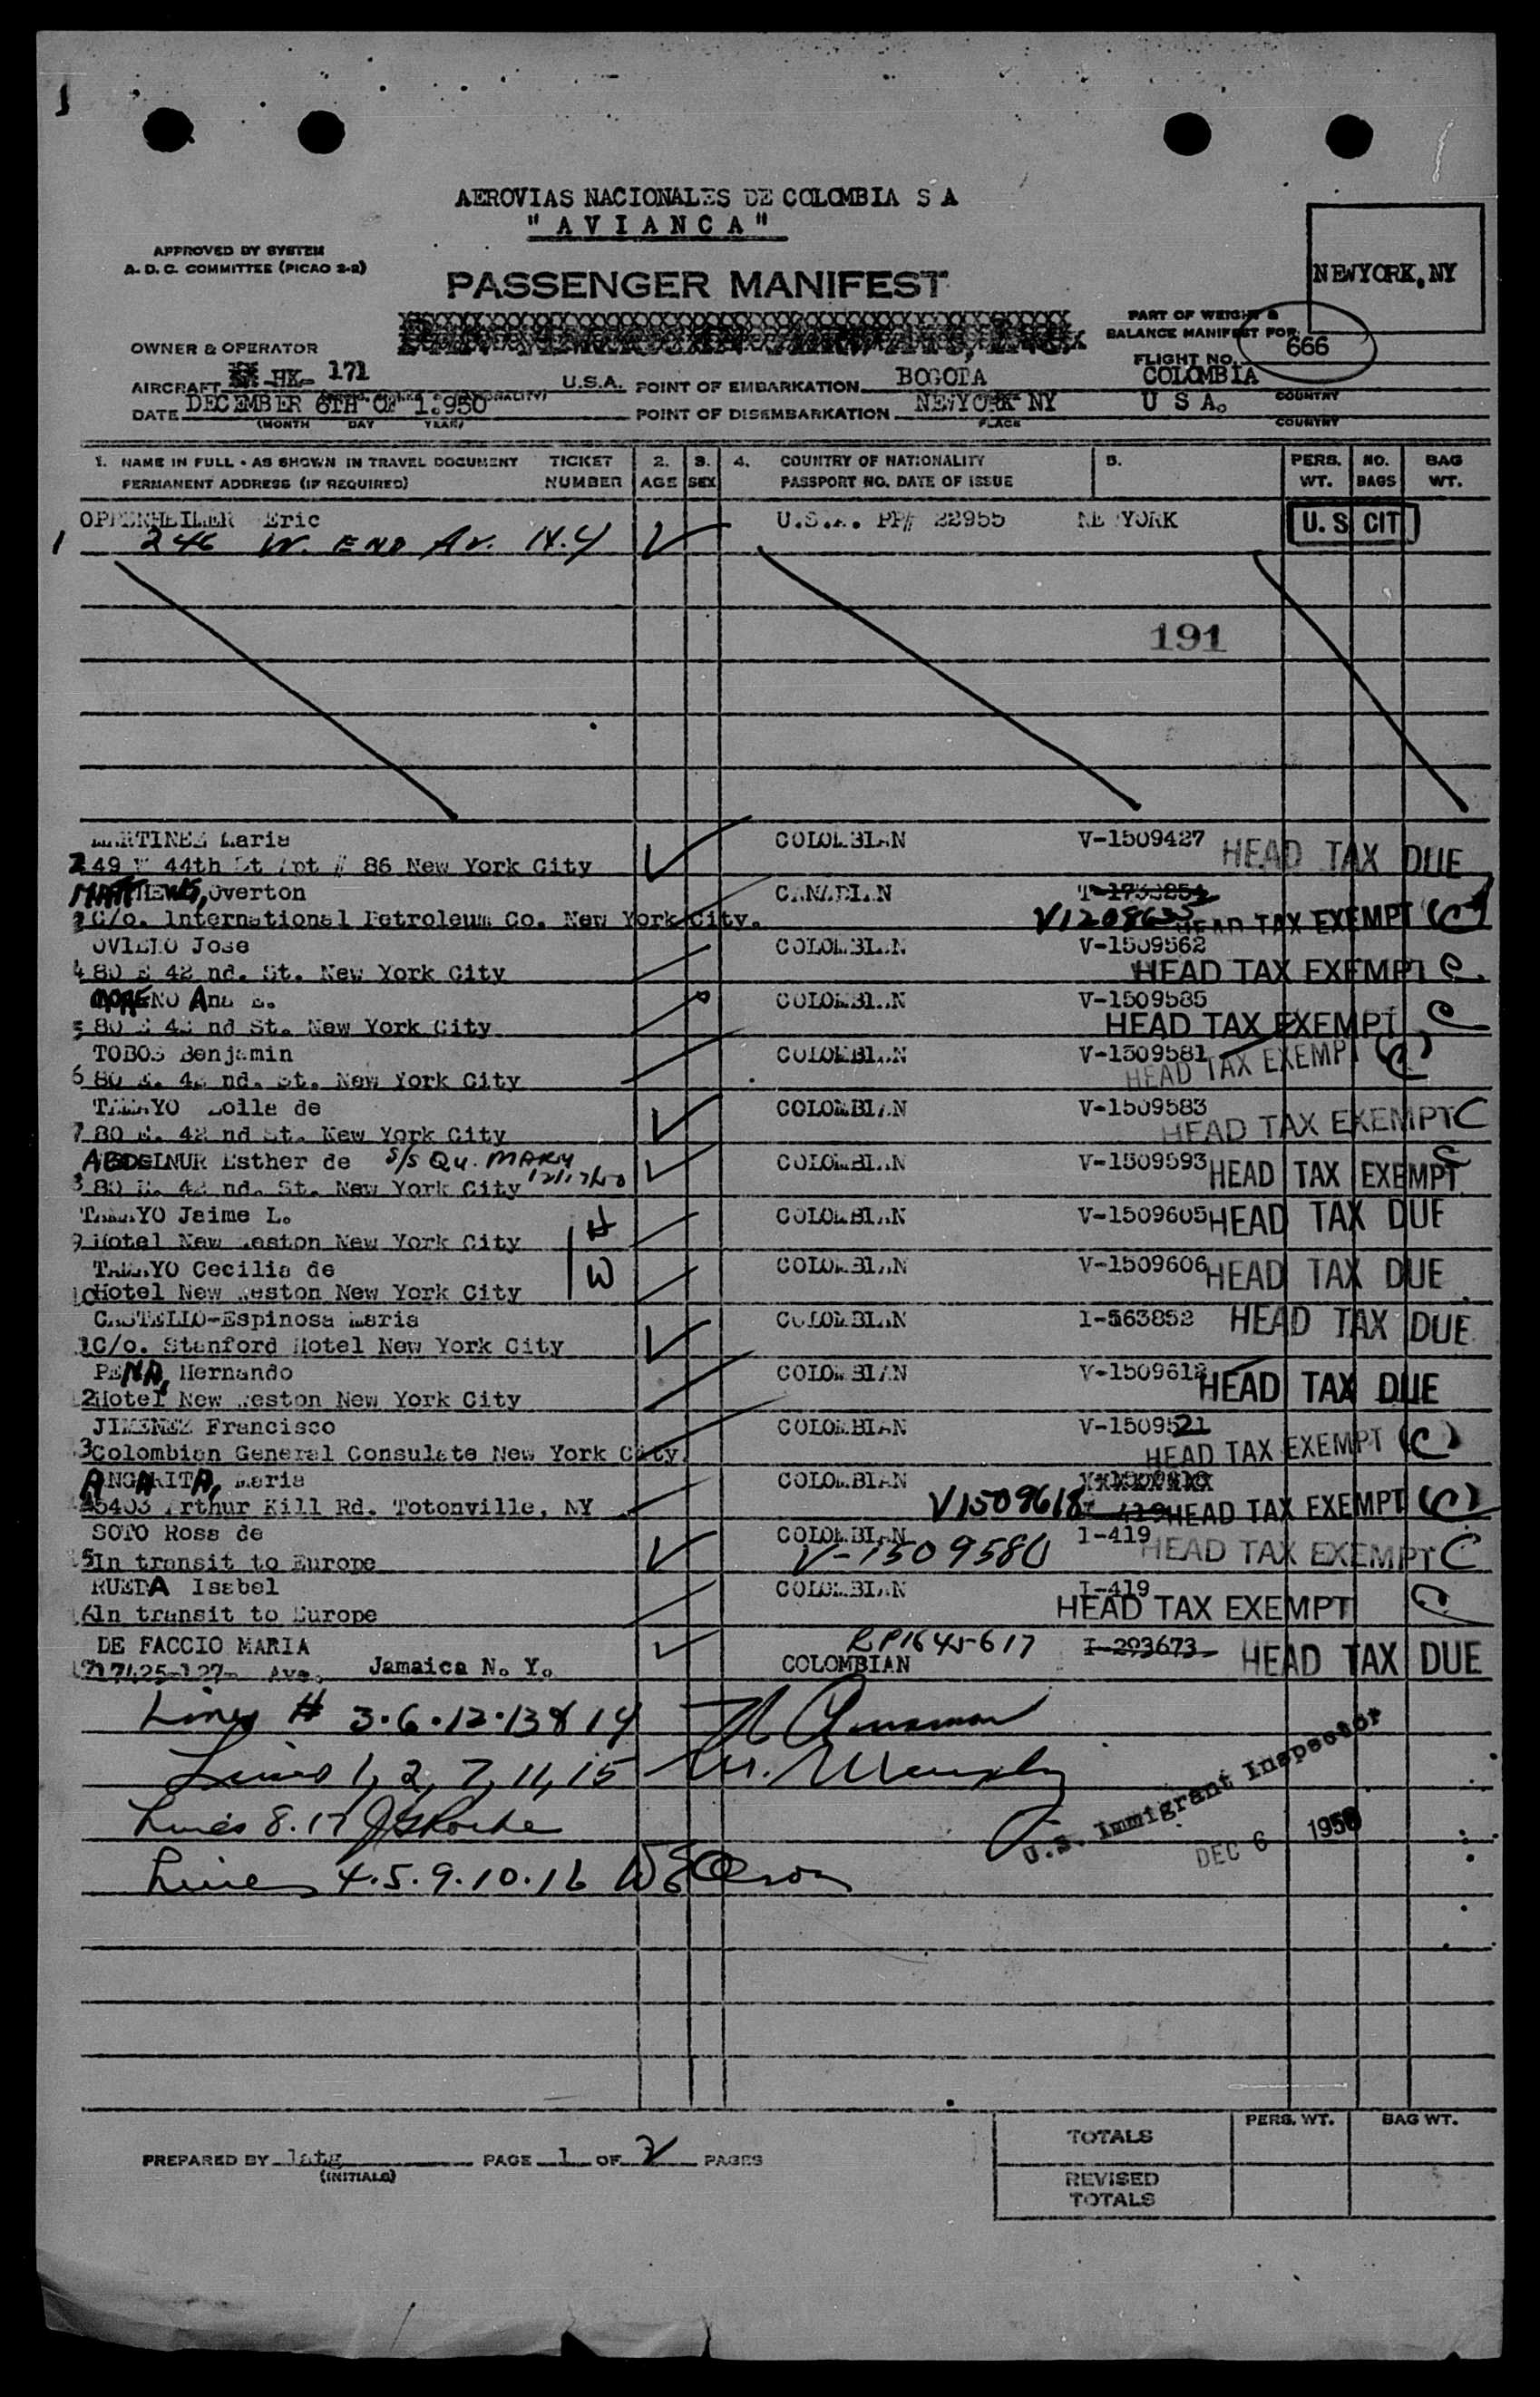 AEROVIAS NACIONALES DE COLOMBIA S A
" A V I A N C A "
APPROVED BY SYSTEM
A. D. C. COMMITTEE (PICAO 2-2)
PASSENGER MANIFEST
NEWYORK, NY
PART OF WEIGHT &
BALANCE MANIFEST FOR
OWNER & OPERATOR
FLIGHT NO. 666
AIRCRAFT HK- 171 U.S.A. POINT OF EMBARKATION BOGOTA COLOMBIA
COUNTRY
DATE DECEMBER 6TH OF 1.950 POINT OF DISEMBARKATION NEWYORK NY U S A.
(MONTH DAY YEAR) PLACE COUNTRY
1. NAME IN FULL - AS SHOWN IN TRAVEL DOCUMENT TICKET 2. 3. 4. COUNTRY OF NATIONALITY 5. PERS. NO. BAG
PERMANENT ADDRESS (IF REQUIRED) NUMBER AGE SEX PASSPORT NO. DATE OF ISSUE WT. BAGS WT.
OPPENHEIMER Eric U.S.A. PP# 22955 NEWYORK U. S CIT
1 246 W. END AV. N.Y
191
MARTINEZ Maria COLOMBIAN V-1509427 HEAD TAX DUE
2 49 W 44th St Apt # 86 New York City
MATTHEWS, Overton CANADIAN
3 C/o. International Petroleum Co. New York City. HEAD TAX EXEMPT (C)
OVIEDO Jose COLOMBIAN V-1509562
4 80 E 42 nd. St. New York City HEAD TAX EXEMPT C.
MORENO Ana COLOMBIAN V-1509585
5 80 E 42 nd St. New York City HEAD TAX EXEMPT C
TOBOS Benjamin COLOMBIAN V-1509581
6 80 E. 42 nd. St. New York City HEAD TAX EXEMPT (C)
TAMAYO Lolla de COLOMBIAN V-1509583
7 80 E. 42 nd St. New York City HEAD TAX EXEMPT C
ABDELNUR Esther de S/S QU. MARY COLOMBIAN V-1509593 C
8 80 E. 42 nd. St. New York City 12/12/50 HEAD TAX EXEMPT
TAMAYO Jaime L. H COLOMBIAN V-1509605 HEAD TAX DUE
9 Hotel New Weston New York City
TAMAYO Cecilia de W COLOMBIAN V-1509606 HEAD TAX DUE
10 Hotel New Weston New York City
CASTELLO-Espinosa Maria COLOMBIAN I-563852 HEAD TAX DUE
11 C/o. Stanford Hotel New York City
PENA, Hernando COLOMBIAN V-1509612 HEAD TAX DUE
12 Hotel New Weston New York City
JIMENEZ Francisco COLOMBIAN V-1509521
13 Colombian General Consulate New York City. HEAD TAX EXEMPT (C)
ANGARITA, Maria COLOMBIAN
5403 Arthur Kill Rd. Totonville, NY V1509618 HEAD TAX EXEMPT (C)
SOTO Rosa de COLOMBIAN I-419
15 In transit to Europe V-1509580 HEAD TAX EXEMPT C
RUEDA Isabel COLOMBIAN I-419
16 In transit to Europe HEAD TAX EXEMPT C
DE FACCIO MARIA RP1645-617 I-293673 HEAD TAX DUE
17 17425-127- Ave. Jamaica N. Y. COLOMBIAN
Lines # 3.6.12.13 & 14
Lines 1, 2, 7, 11, 15 Murphy
Lines 8.17
Lines 4.5.9.10.16
U.S. Immigrant Inspector
DEC 6 1950
PREPARED BY latg PAGE 1 OF 2 PAGES
(INITIALS)
PERS. WT. BAG WT.
TOTALS
REVISED
TOTALS